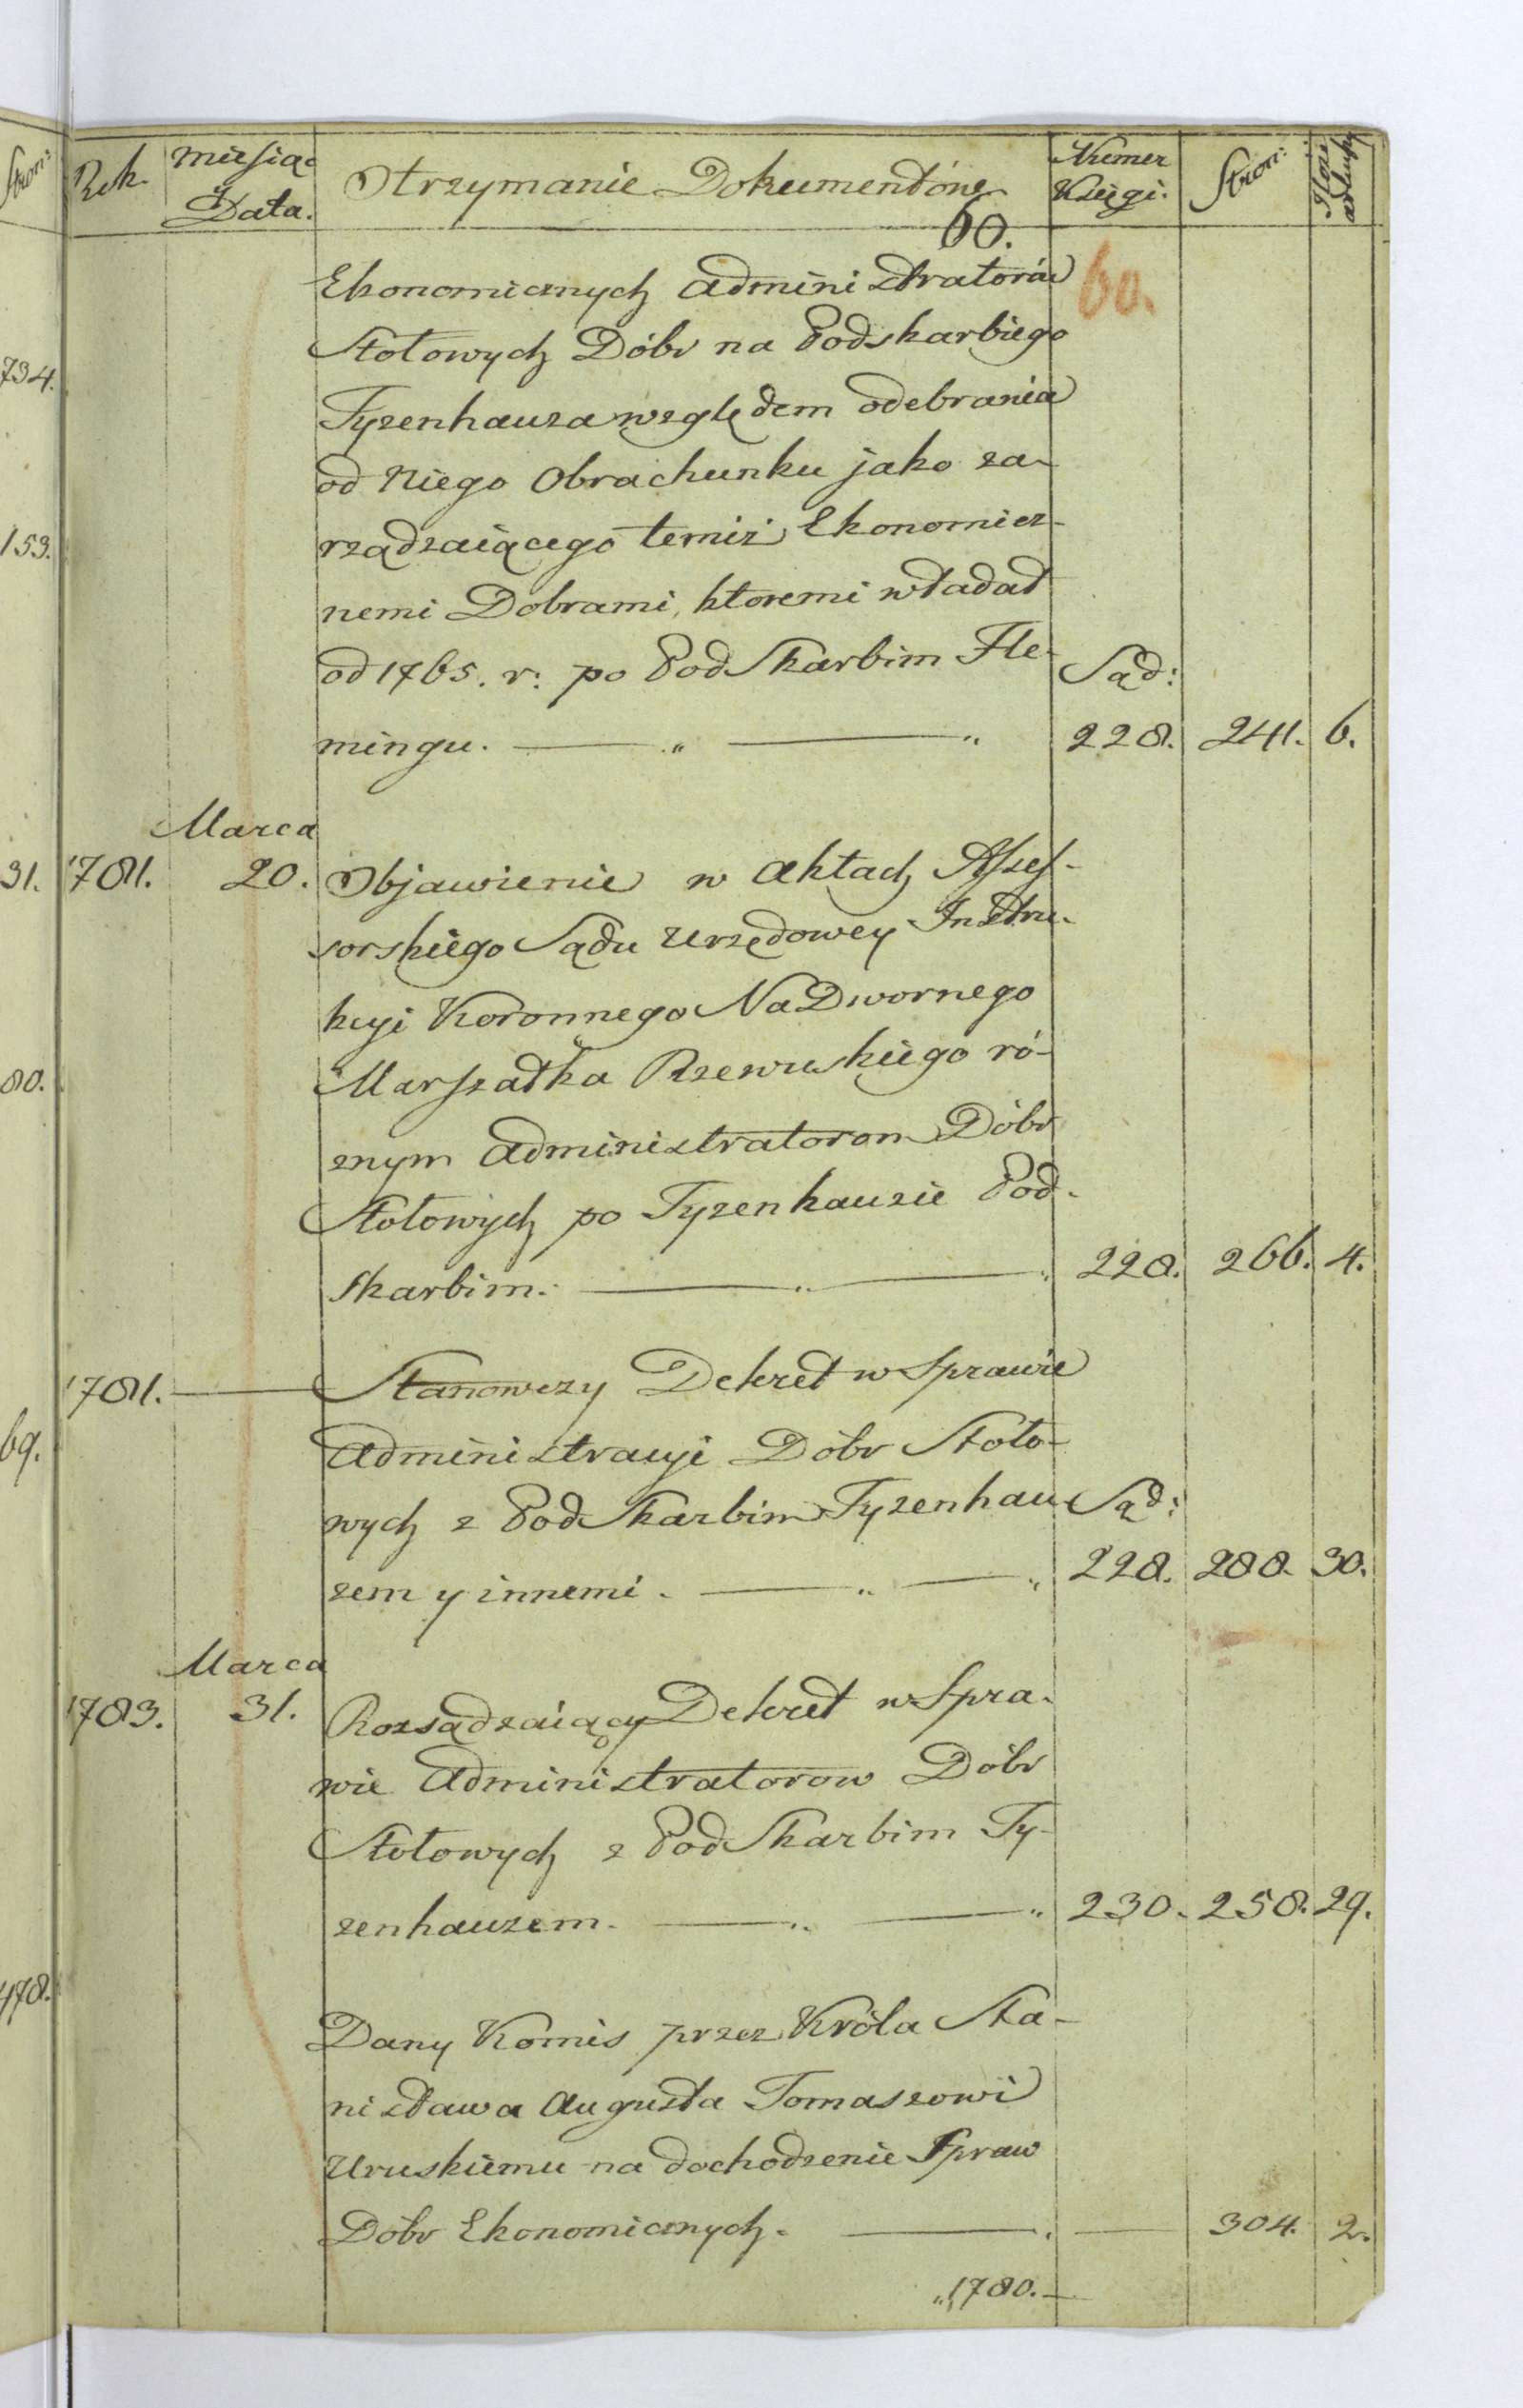 Stron:
Rok.
miesiąc
i
Data.
Otrzymanie Dokumentów
60.
Numer
Księgi.
Stron:
Ilość
60.
Ekonomicznych Administratorów
Stołowych Dóbr na Podskarbiego
734.
Tyzenhauza względem odebrania
od Niego Obrachunku jako za-
153.
rządzaiącego temiż Ekonomicz-
nemi Dobrami, ktoremi władał
od 1765. r: po PodSkarbim Fle-
Sąd:
mingu. — „ — „ 228. 241. 6.
Marca
31.
1781. 20. Objawienie w Aktach Assess-
sorskiego Sądu Urzędowey Instru-
kcyi Koronnego NaDwornego
80.
Marszałka Rzewuskiego ró-
znym Administratorom Dóbr
Stołowych po Tyzenhauzie Pod-
skarbim. — „ — „ 228. 266. 4.
1781. — Stanowczy Dekret w Sprawie
69.
Administracyi Dóbr Stoło-
wych z PodSkarbim Tyzenhau-
Sąd:
zem y innemi. — „ — „ 228. 288. 30.
Marca
1783. 31. Rozsądzaiący Dekret w Spra-
wie Administratorow Dóbr
Stołowych z PodSkarbim Ty-
zenhauzem. — „ — „ 230. 258. 29.
478.
Dany Komis przez Króla Sta-
nisława Augusta Tomaszowi
Uruskiemu na dochodzenie Spraw
Dóbr Ekonomicznych. — „ — 304. 2.
„1780. —